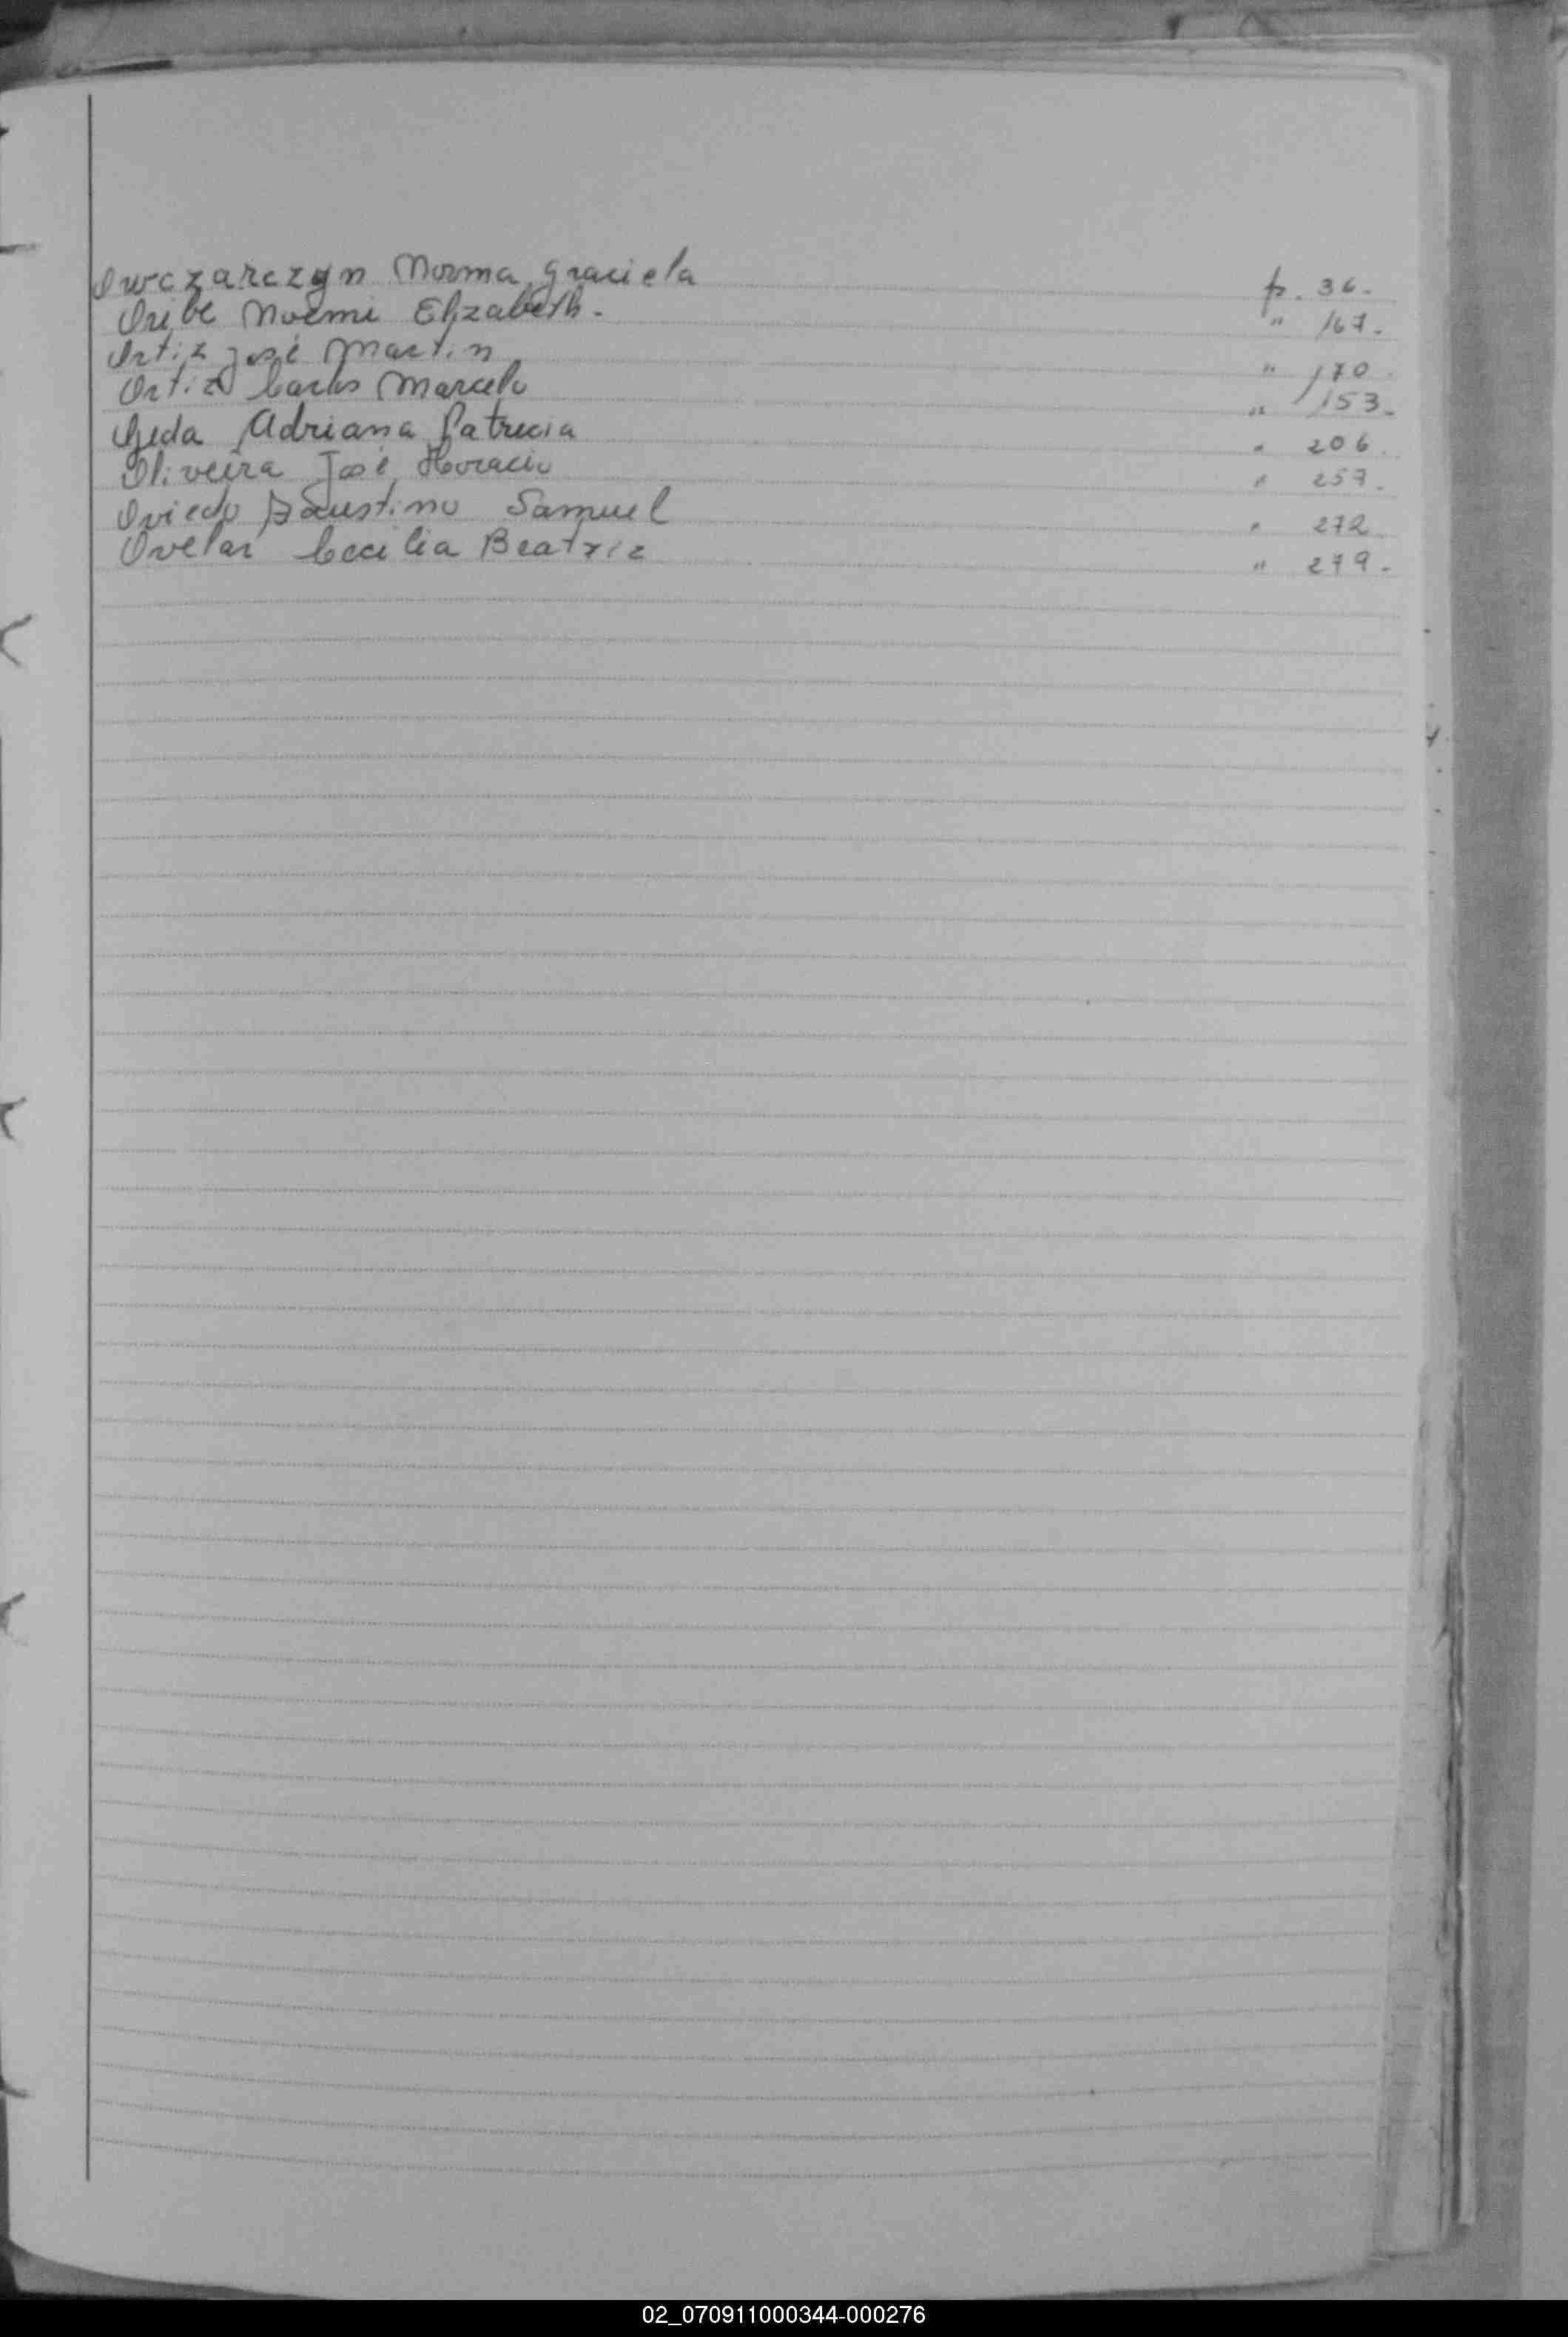 Owczarczyn Norma Graciela p. 36.
Oribe Noemi Elizabeth. " 167.
Ortiz José Martin " 170.
Ortiz Carlos Marcelo " 153.
Ojeda Adriana Patricia " 206.
Oliveira José Horacio " 257.
Oviedo Faustino Samuel " 272.
Ovelar Cecilia Beatriz " 279.
02_070911000344-000276